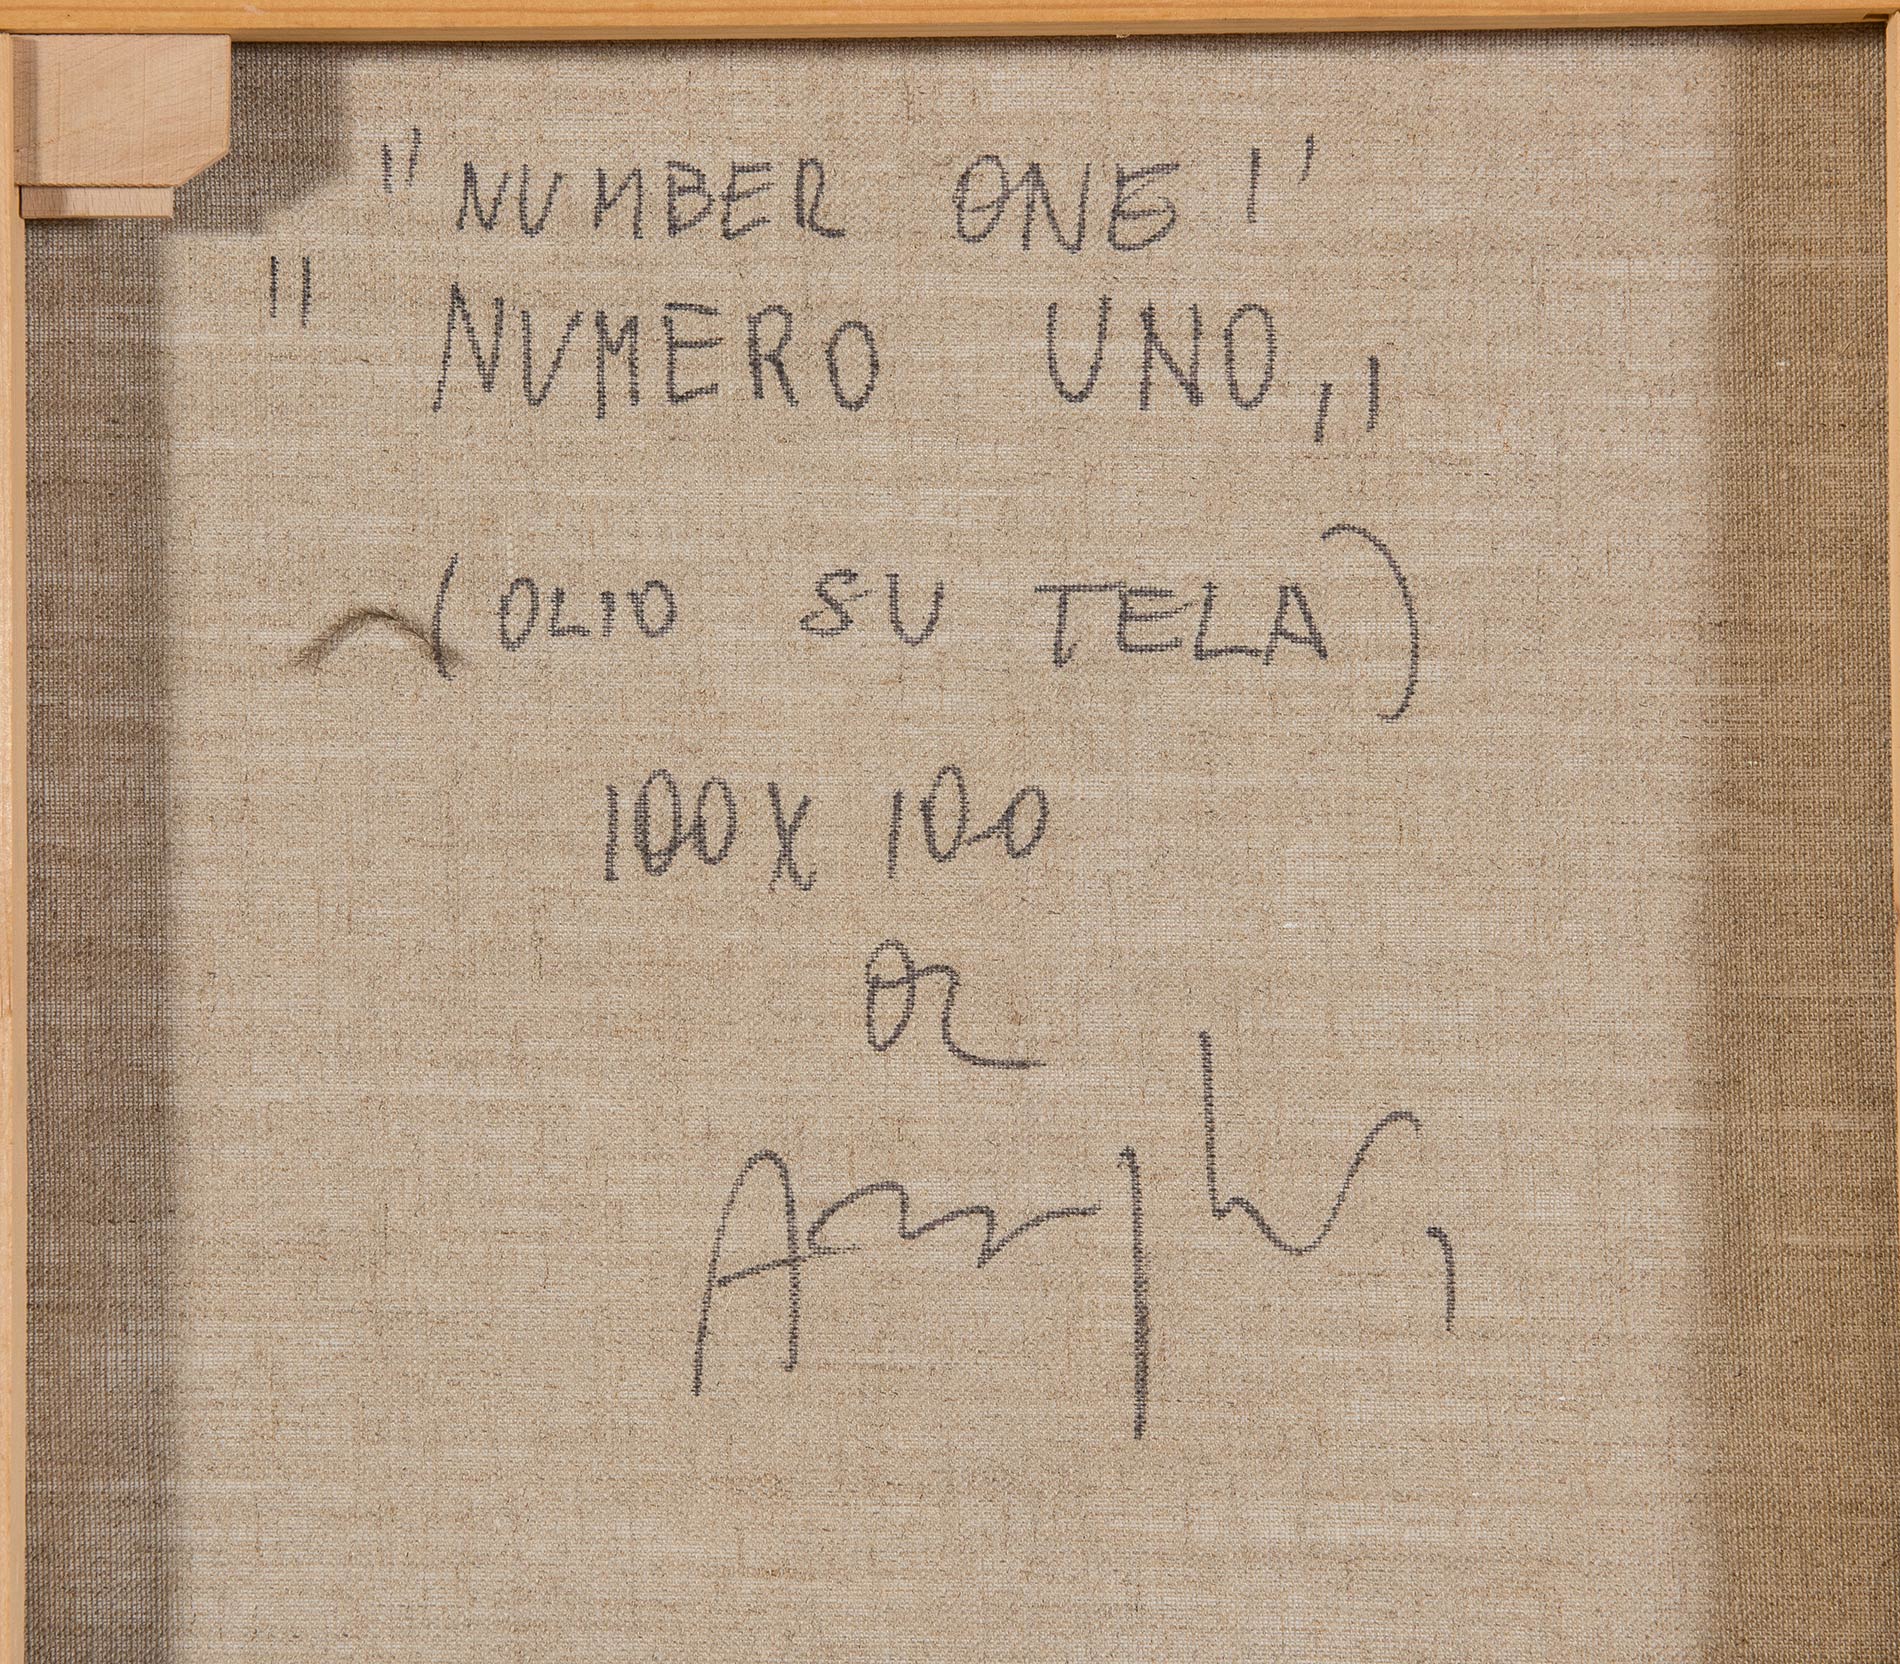 "NUMBER ONE!'
"NUMERO UNO,,
(OLIO SU TELA)
100X 100